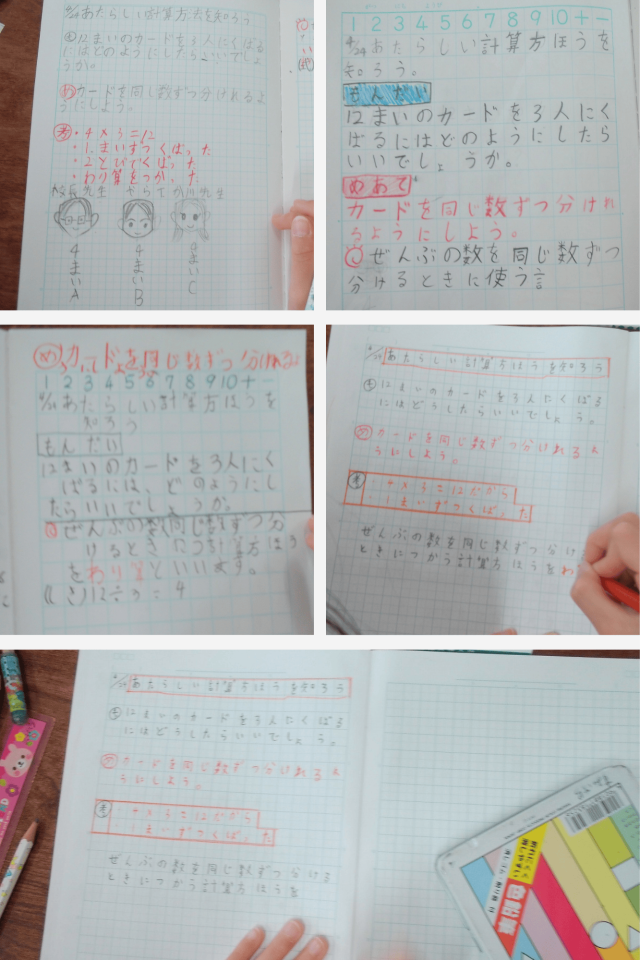 4/24 あたらしい計算方法を知ろう
も 12まいのカードを3人にくばる
にはどのようにしたらいいでしょ
うか。
め カードを同じ数ずつ分けれるよ
うにしよう。
考 ・4×3=12
・1まいずつくばった
・2とびでくばった
・わり算をつかった
校長先生
4まい
A
4まい
B
まい
C
1 2 3 4 5 6 7 8 9 10 + −
4/24 あたらしい計算方ほうを
知ろう。
もんだい
12まいのカードを3人にく
ばるにはどのようにしたら
いいでしょうか。
めあて
カードを同じ数ずつ分けれ
るようにしよう。
ぜんぶの数を同じ数ずつ
分けるときに使う言
め カードを同じ数ずつ分けれるよ
1 2 3 4 5 6 7 8 9 10 + −
4/24 あたらしい計算方ほうを
知ろう
もんだい
12まいのカードを3人にく
ばるには、どのようにし
たらいいでしょうか。
ぜんぶの数を同じ数ずつ分
けるときにつかう計算方ほう
をわり算といいます。
(しき)12÷3=4
4/24 あたらしい計算方ほうを知ろう
も 12まいのカードを3人にくばる
にはどうしたらいいでしょう。
め カードを同じ数ずつ分けれるよ
うにしよう。
考 ・4×3=12だから
・1まいずつくばった
ぜんぶの数を同じ数ずつ分ける
ときにつかう計算方ほうをわ
4/24 あたらしい計算方ほうを知ろう
も 12まいのカードを3人にくばる
にはどうしたらいいでしょう。
め カードを同じ数ずつ分けれるよ
うにしよう。
考 ・4×3=12だから
・1まいずつくばった
ぜんぶの数を同じ数ずつ分ける
ときにつかう計算方ほうを
折れにくく
消しやすい
色鉛筆